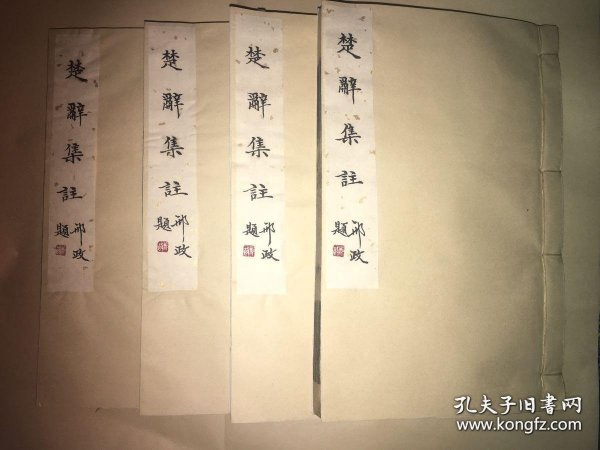 楚辭集註
邢政
題
楚辭集註
邢政
題
楚辭集註
邢政
題
楚辭集註
邢政
題
孔夫子旧書网
www.kongfz.com